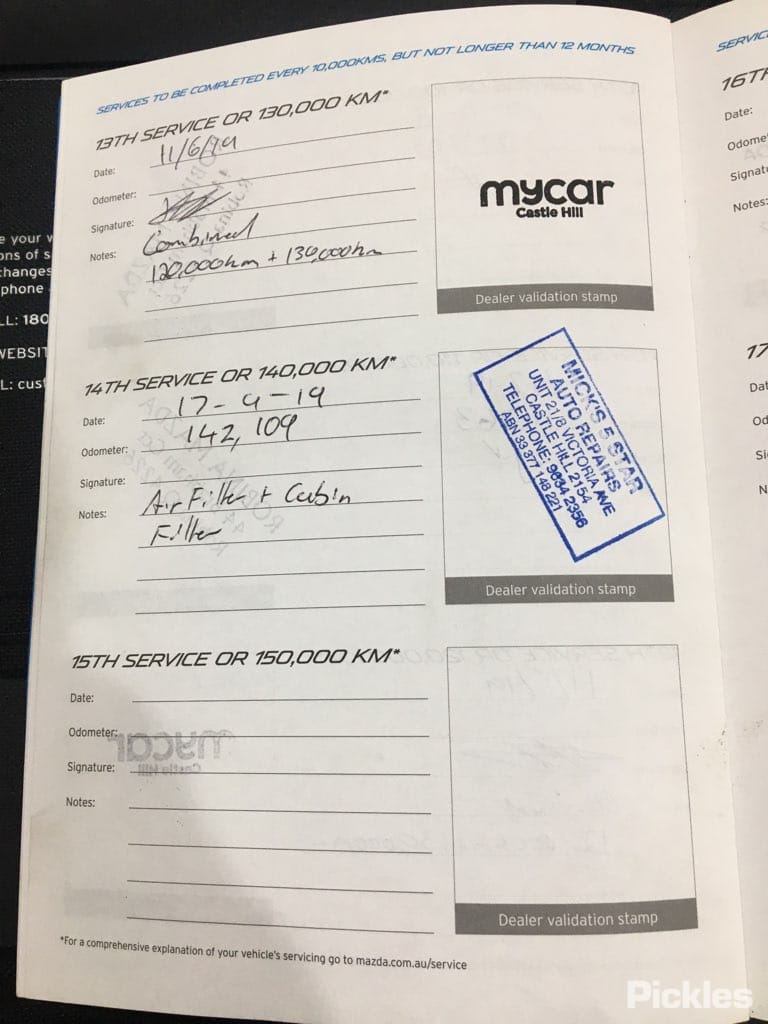 SERVICES TO BE COMPLETED EVERY 10,000KMS, BUT NOT LONGER THAN 12 MONTHS
13TH SERVICE OR 130,000 KM*
Date: 11/6/19
Odometer:
Signature:
Notes: Combined
120,000km + 130,000km
mycar
Castle Hill
Dealer validation stamp
14TH SERVICE OR 140,000 KM*
Date: 17-9-19
Odometer: 142,109
Signature:
Notes: Air Filter + Cabin
Filter
MICK'S 5 STAR
AUTO REPAIRS
UNIT 21/8 VICTORIA AVE
CASTLE HILL 2154
TELEPHONE: 9634 2356
ABN 33 377 148 221
Dealer validation stamp
15TH SERVICE OR 150,000 KM*
Date:
Odometer:
Signature:
Notes:
Dealer validation stamp
*For a comprehensive explanation of your vehicle's servicing go to mazda.com.au/service
e your
ons of s
changes
phone
LL: 180
WEBSIT
L: cust
SERVIC
16TH
Date:
Odome
Signat
Notes:
17
Dat
Od
Si
N
Pickles